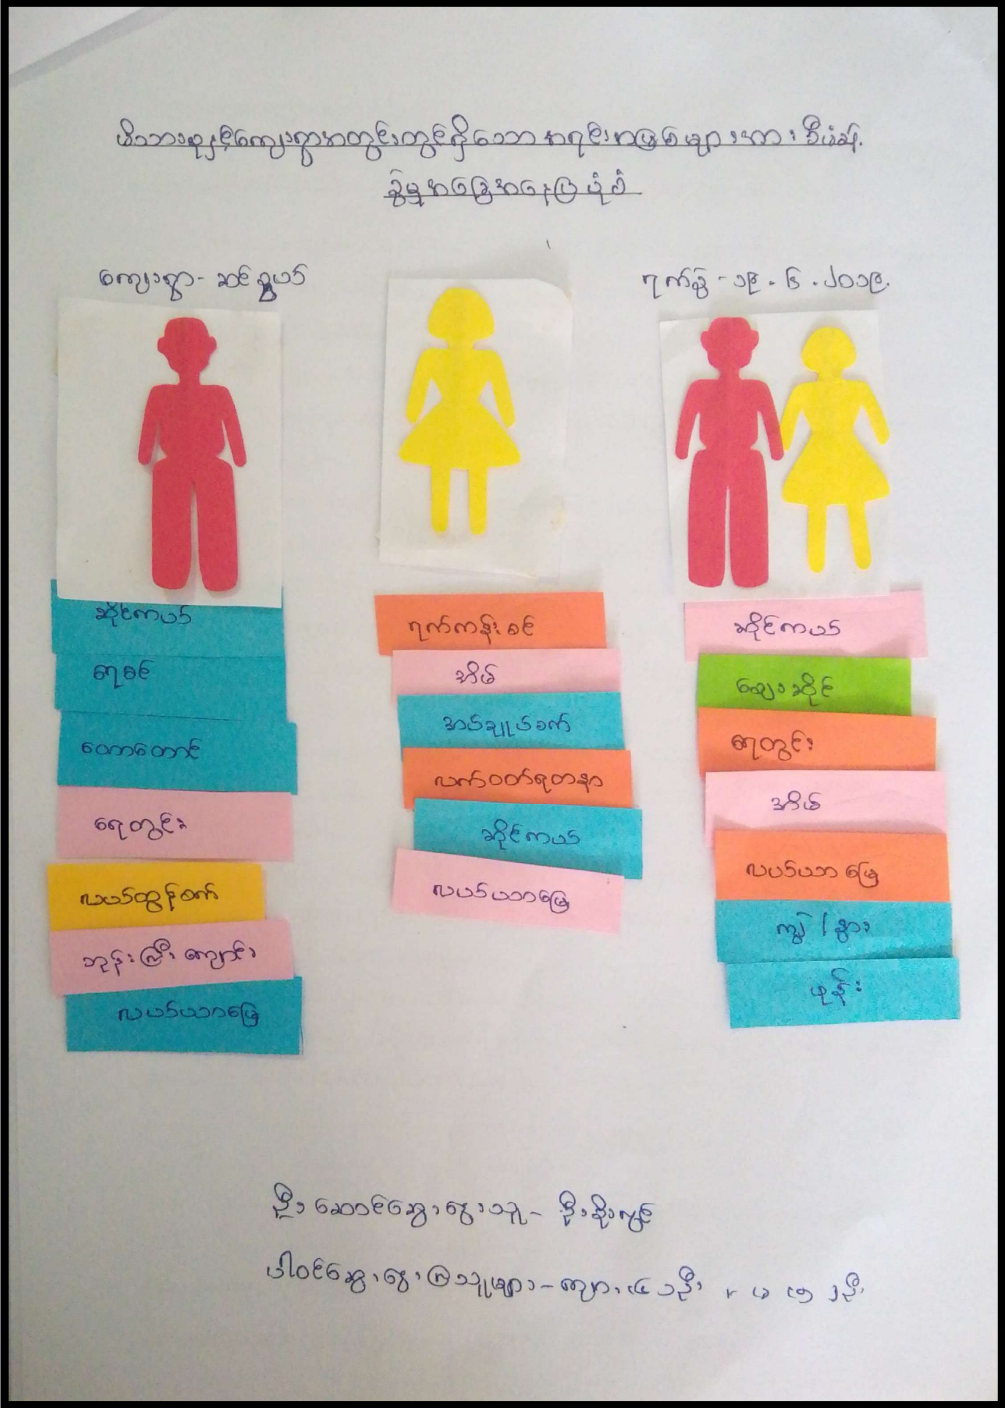 မိသားစုနှင့်ကျေးရွာအတွင်းတွင်ရှိသော အရင်းအမြစ်များအား စီမံခန့်
ခွဲမှုအခြေအနေပြပုံစံ
ကျေးရွာ - ဆင်ရွှယ်
ရက်စွဲ - ၁၉.၆.၂၀၁၉.
ဆိုင်ကယ်
ရေစင်
တောတောင်
ရေတွင်း
လယ်ထွန်စက်
ဘုန်းကြီးကျောင်း
လယ်ယာမြေ
ရက်ကန်းစင်
အိမ်
အပ်ချုပ်စက်
လက်ဝတ်ရတနာ
ဆိုင်ကယ်
လယ်ယာမြေ
ဆိုင်ကယ်
ဈေးဆိုင်
ရေတွင်း
အိမ်
လယ်ယာမြေ
ကျွဲ / နွား
ဖုန်း
ဦးဆောင်ဆွေးနွေးသူ - ဦးစိုးလွင်
ပါဝင်ဆွေးနွေးကြသူများ - ကျား